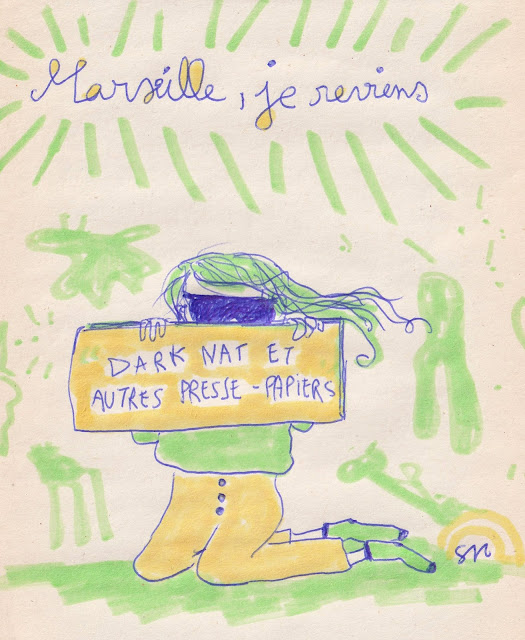 Marseille, je reviens
DARK NAT ET
AUTRES PRESSE-PAPIERS
sn